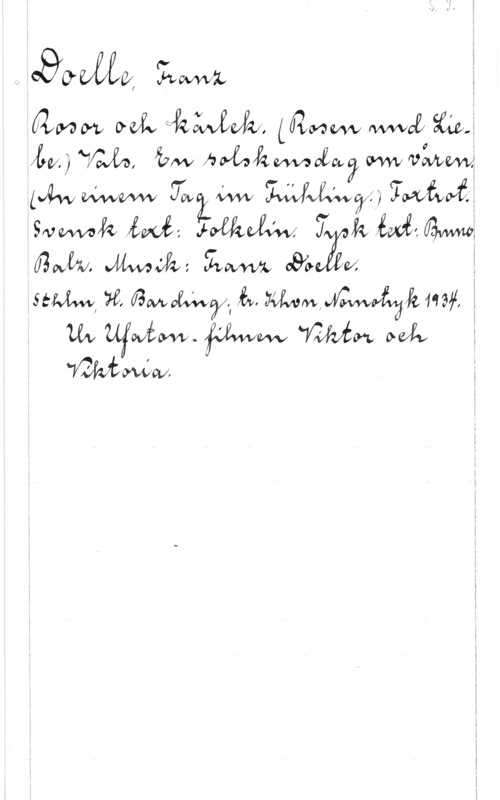 Doelle, Franz
Rosor och kärlek. (Rosen und Lie-
be.) Vals. En solskensdag om våren.
(An einem Tag im Frühling.) Foxtrot.
Svensk text: Folkelin. Tysk text: Bruno
Balz. Musik: Franz Doelle.
Sthlm, H. Barding, tr. Khvn, Nornotryk 1934.
Ur Ufaton-filmen Viktor och
Viktoria.